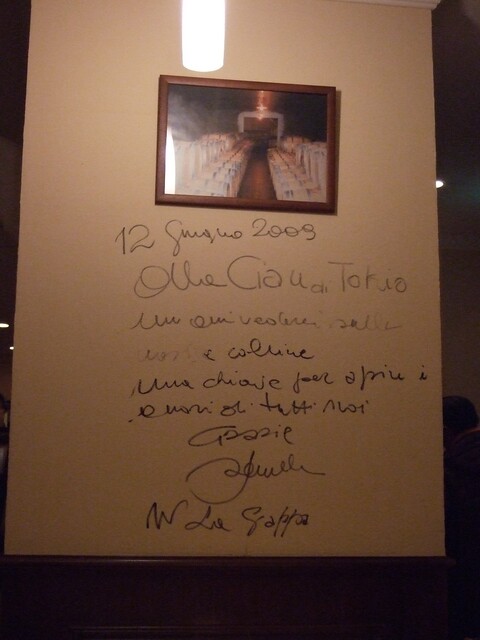 12 Giugno 2009
Alla Ciau di Tokio
un arrivederci sulle
nostre colline
una chiave per aprire i
cuori di tutti noi
Grazie
W La Grappa